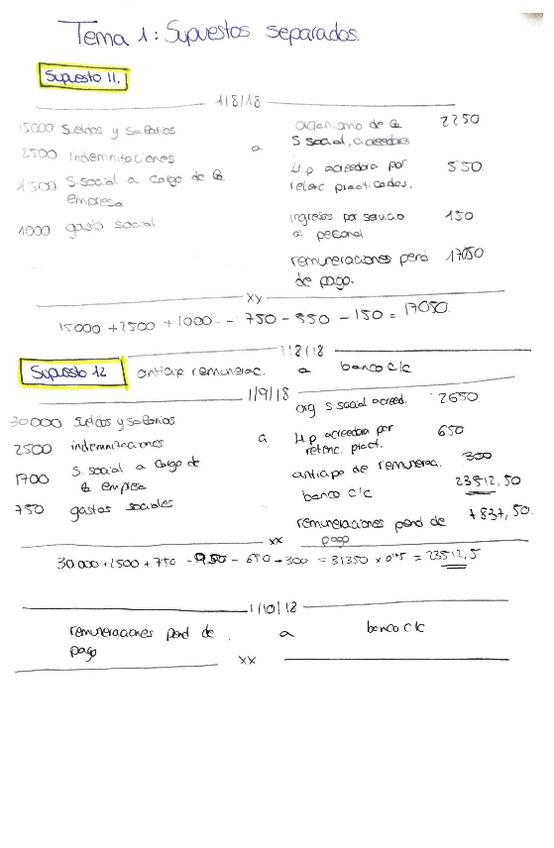 Tema 1: Supuestos separados.
Supuesto 11.
1/8/18
15000 Sueldos y Salarios
2500 Indemnitaciones
1500 S.social a cargo de la
empresa
1000 gasto social
a
organismo de la 2250
S social, acreedores
H.p acreedora por 550
retenc practicadas.
ingresos por servicio 150
al personal
remuneraciones pend 17050
de pago.
xy
15000 + 2500 + 1000 - 750 - 550 - 150 = 17050
1/8/18
Supuesto 12 anticip remunerac. a banco c/c
1/9/18
30000 Sueldos y Salarios
2500 indemnizaciones
1700 S.social a cargo de
la empresa
750 gastos sociales
a
org S social acreed. 2650
H.p acreedora por 650
retenc. pract.
anticipo de remunera. 300
banco c/c 23512,50
remuneraciones pend de 7837,50.
pago
xx
30000 + 2500 + 750 - 950 - 650 - 300 = 31350 x 0'75 = 23512,5
1/10/18
remuneraciones pend de a banco c/c
pago
xx